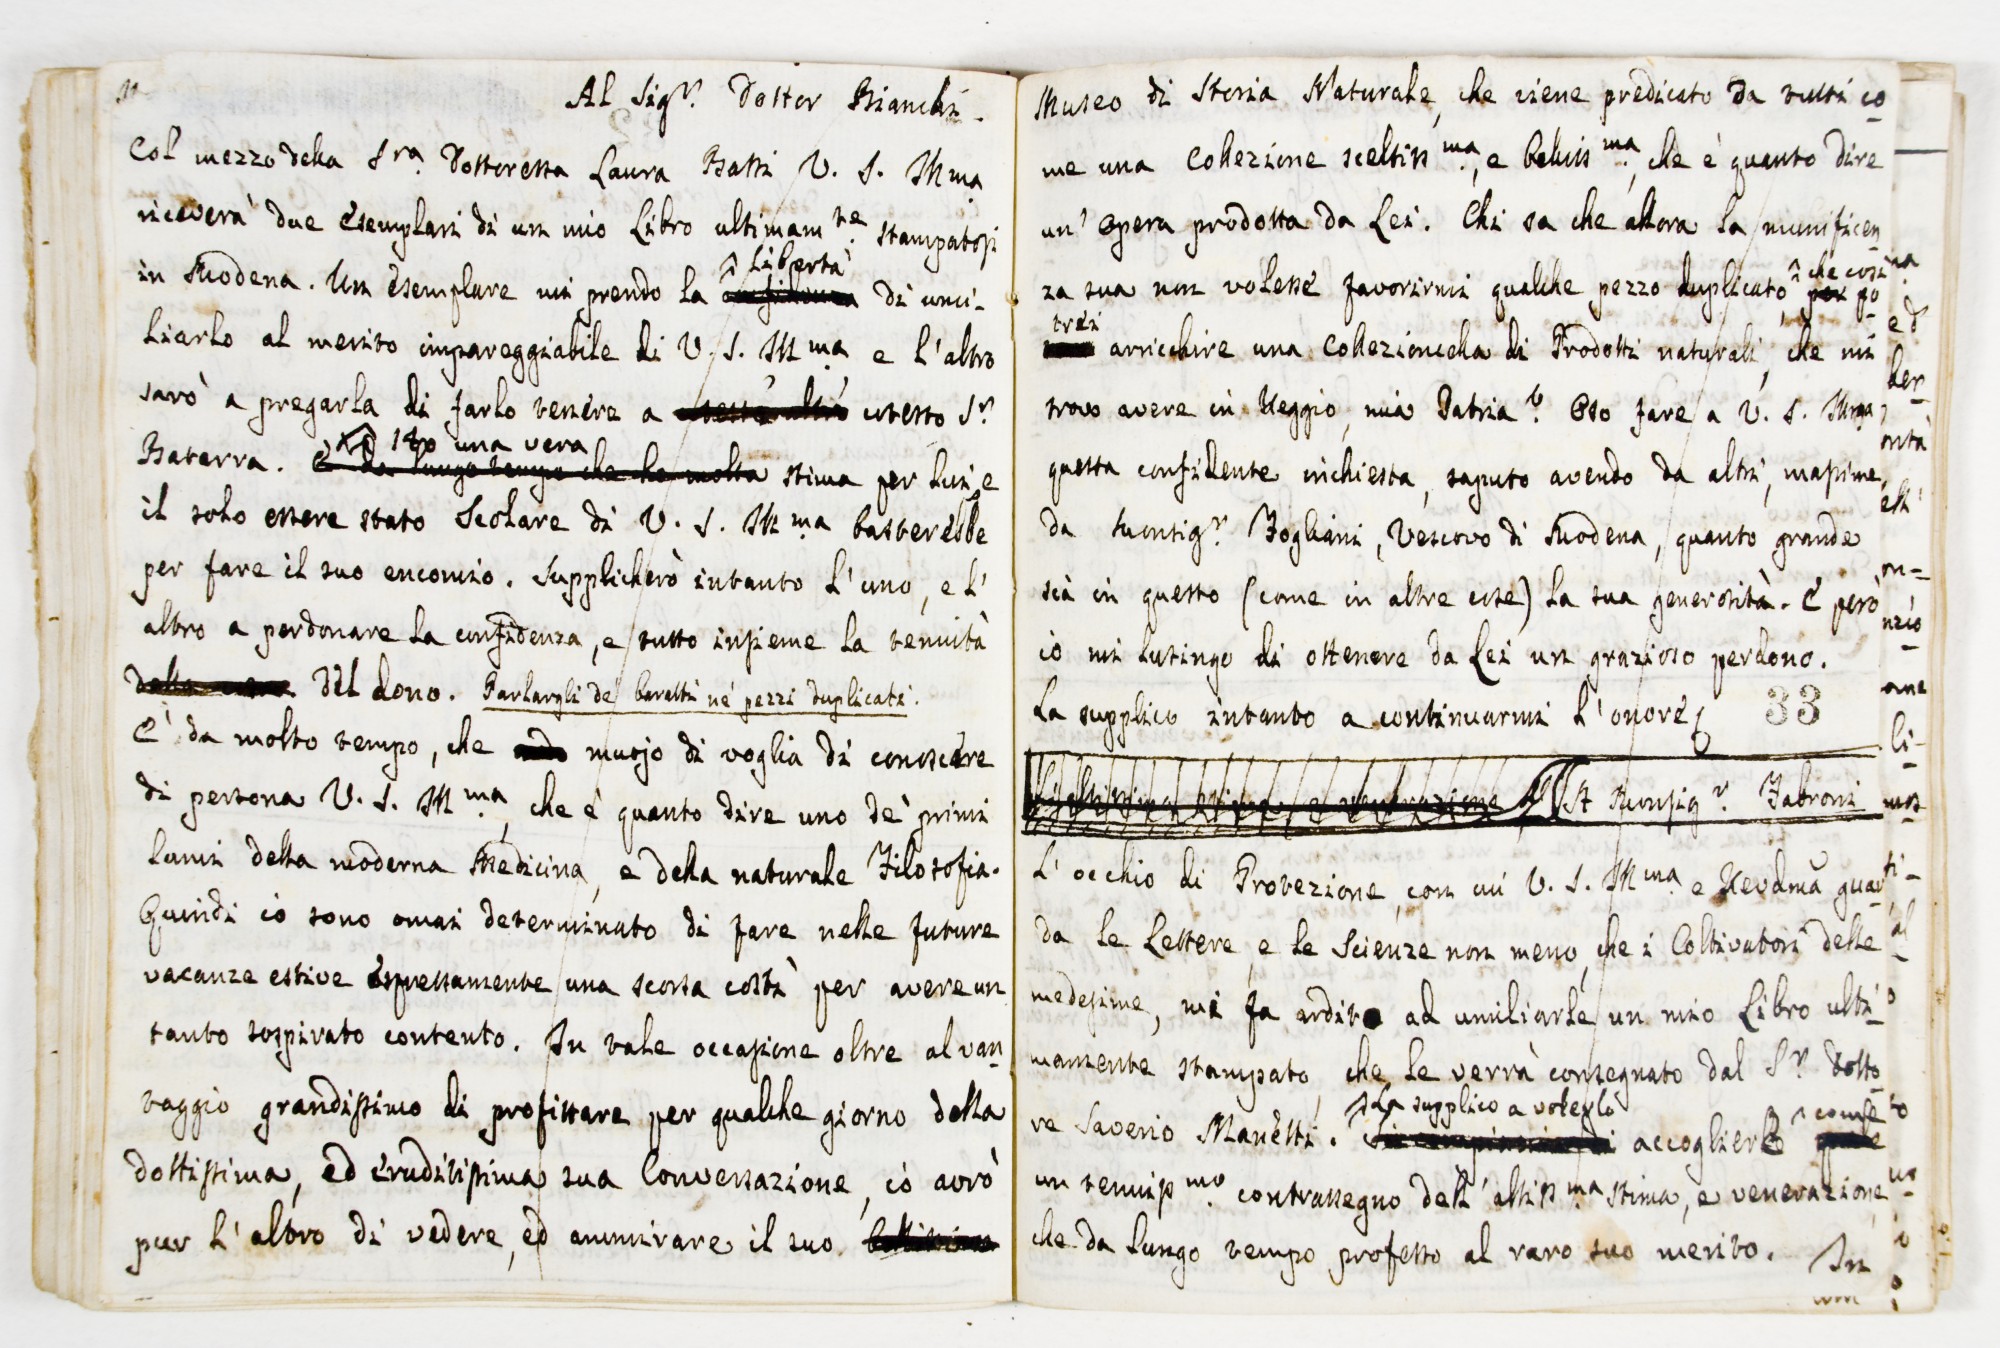 Al Sigr. Dottor Bianchi.
Col mezzo della Sra. Dottoressa Laura Bassi V. S. Illma.
riceverà due Esemplari di un mio Libro ultimamte. stampatosi
^ Libertà
in Modena. Un Esemplare mi prendo la confidenza di umi-
liarlo al merito impareggiabile di V. S. Illma. e l'altro
sarò a pregarla di farlo tenere a cotesto Sr.
Ho una vera
Baterra. È da lungo tempo che ho molta stima per lui, e
il solo essere stato Scolare di V. S. Illma. basterebbe
per fare il suo encomio. Supplicherò intanto l'uno, e l'
altro a perdonare la confidenza, e tutto insieme la tenuità
del dono. Parlargli de' baratti ne' pezzi duplicati.
È da molto tempo, che muojo di voglia di conoscere
di persona V. S. Illma., che è quanto dire uno de' primi
lumi della moderna Medicina, e della naturale Filosofia.
Quindi io sono omai determinato di fare nelle future
vacanze estive espressamente una scorsa costì per avere un
tanto sospirato contento. In tale occasione oltre al van
taggio grandissimo di profittare per qualche giorno della
dottissima, ed eruditissima sua Conversazione, iò avrò
pur l'altro di vedere, ed ammirare il suo bellissimo
Museo di Storia Naturale, che viene predicato da tutti co
me una Collezione sceltissma., e bellissma., che è quanto dire
un' opera prodotta da Lei. Chi sa che allora la munificen
^ che così
za sua non volesse favorirmi qualche pezzo duplicato, per po
trei
arricchire una Collezioncella di Prodotti naturali, che mi
trovo avere in Reggio, mia Patria? Oso fare a V. S. Illma.
questa confidente richiesta, saputo avendo da altri, massime
da Monsigr. Fogliani, Vescovo di Modena, quanto grande
sia in questo (come in altre cose) la sua generosità. E però
iò mi lusingo di ottenere da Lei un grazioso perdono.
La supplico intanto a continuarmi l'onore
33
stima, e venerazione A Monsigr. Fabroni
L'occhio di Protezione, con cui V. S. Illma. e Revdma guar
da le Lettere, e le Scienze non meno, che i Coltivatori delle
medesime, mi fa ardito ad umiliarle un mio Libro ulti
mamente stampato, che le verrà consegnato dal Sr. Dotto
^ La supplico a volerlo
re Saverio Manetti. accoglierlo ^ come
un tenuissmo. contrassegno dell' altissma. stima, e venerazione
che da lungo tempo professo al raro suo merito. In